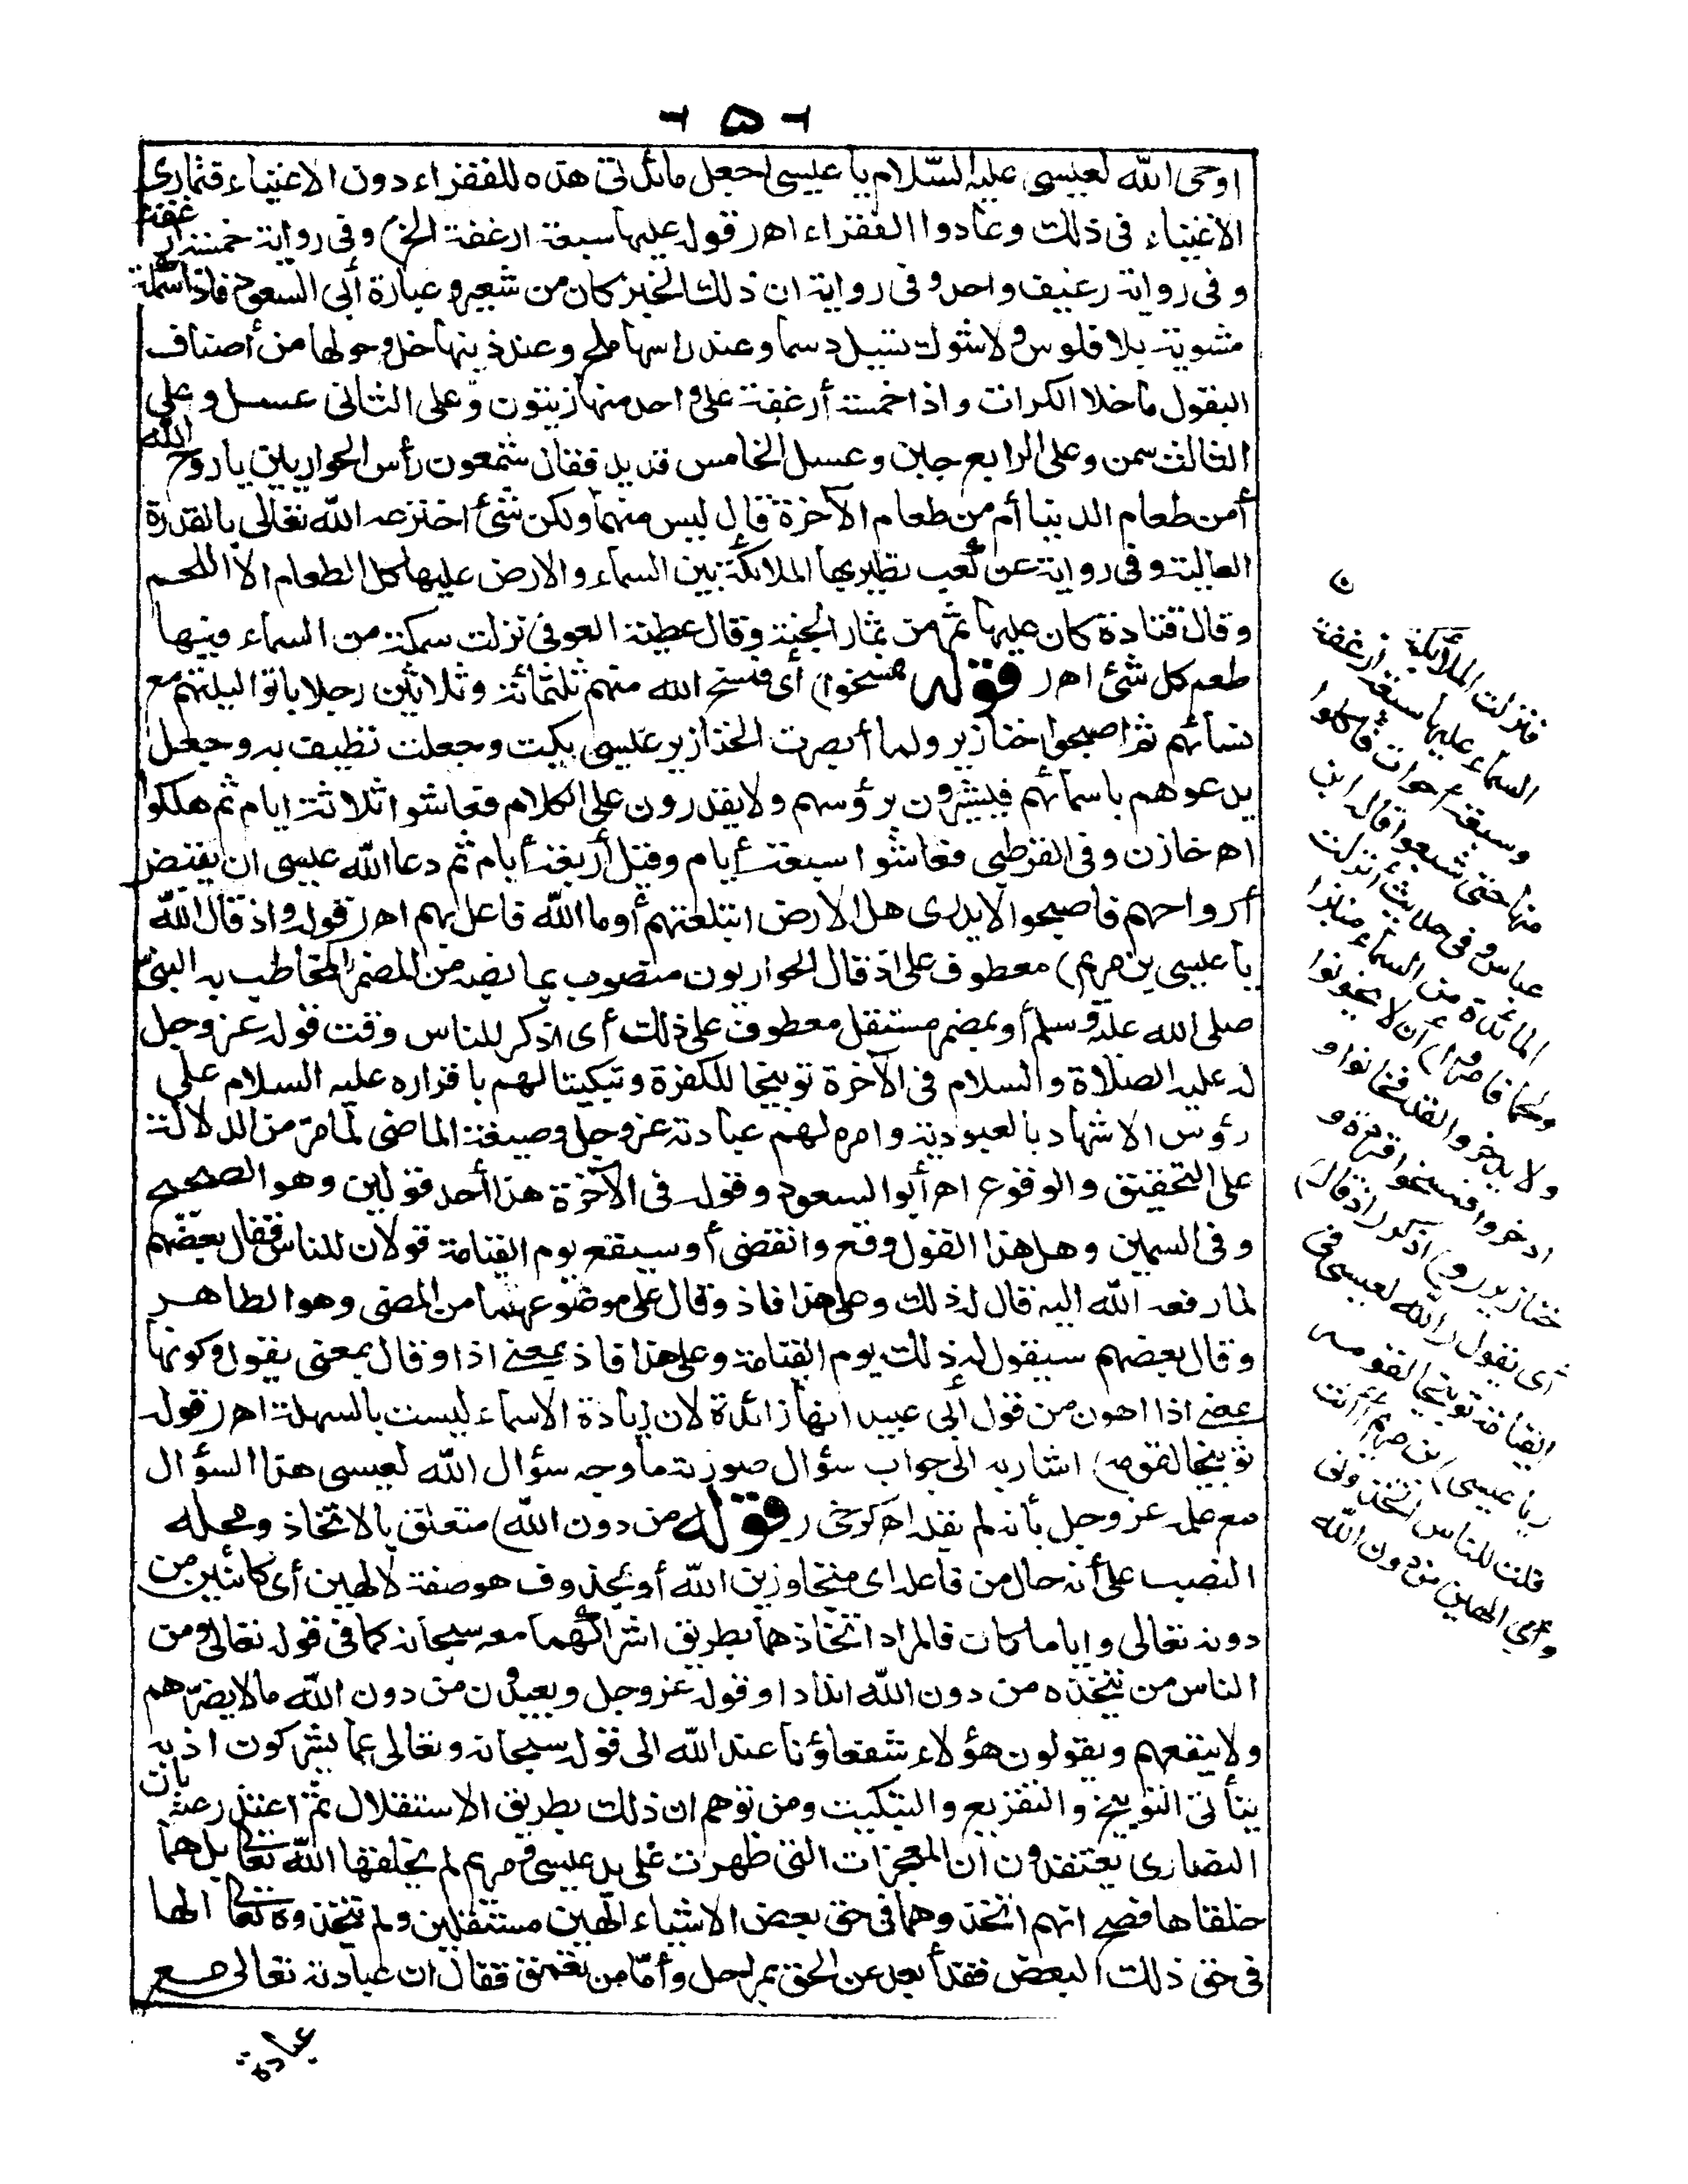 - ۵ -
اوحى الله لعيسى عليه السّلام يا عيسى اجعل مائدتى هذه للفقراء دون الاغنياء فتمارى
الاغنياء فى ذلك وعادوا الفقراء اهـ (قوله عليها سبعة ارغفة الخ) وفى رواية خمسة ارغفة
وفى رواية رغيف واحد وفى رواية ان ذلك الخبز كان من شعير وعبارة أبى السعود فاذا سمكة
مشوية بلا فلوس ولا شوك تسيل دسما وعند راسها ملح وعند ذنبها خل وحولها من أصناف
البقول ما خلا الكراث واذا خمسة أرغفة على واحد منها زيتون وعلى الثانى عسل وعلى
الثالث سمن وعلى الرابع جبن وعسل الخامس قديد فقال شمعون رأس الحواريين يا روح الله
أمن طعام الدنيا أم من طعام الآخرة قال ليس منهما ولكن شئ اخترعه الله تعالى بالقدرة
العالية وفى رواية عن كعب تطير بها الملائكة بين السماء والارض عليها كل الطعام الا اللحم
وقال قتادة كان عليها ثمر من ثمار الجنة وقال عطية العوفى نزلت سمكة من السماء فيها
طعم كل شئ اهـ (قوله فمسخوا) أى فمسخ الله منهم ثلثمائة وثلاثين رجلا باتوا ليلتهم مع
نسائهم ثم اصبحوا خنازير ولما أبصرت الخنازير عيسى بكت وجعلت تطيف به وجعل
يدعوهم باسمائهم فيشيرون برؤسهم ولا يقدرون على الكلام فعاشوا ثلاثة ايام ثم هلكوا
اهـ خازن وفى القرطبى فعاشوا سبعة أيام وقيل أربعة أيام ثم دعا الله عيسى ان يقبض
أرواحهم فاصبحوا لا يدرى هل الارض ابتلعتهم أو ما الله فاعل بهم اهـ (قوله واذ قال الله
يا عيسى بن مريم) معطوف على اذ قال الحواريون منصوب بما نصبه من المضمر المخاطب به النبى
صلى الله عليه وسلم أو بمضمر مستقل معطوف على ذلك أى اذكر للناس وقت قوله عز وجل
له عليه الصلاة والسلام فى الآخرة توبيخا للكفرة وتبكيتا لهم باقراره عليه السلام على
رؤس الاشهاد بالعبودية وامره لهم عبادته عز وجل وصيغة الماضى لما مرّ من الدلالة
على التحقيق والوقوع اهـ أبو السعود وقوله فى الآخرة هذا أحد قولين وهو الصحيح
وفى السمين وهل هذا القول وقع وانقضى أو سيقع يوم القيامة قولان للناس فقال بعضهم
لما رفعه الله اليه قال له ذلك وعلى هذا فاذ وقال على موضوعهما من المضى وهو الظاهر
وقال بعضهم سيقول له ذلك يوم القيامة وعلى هذا فاذ بمعنى اذا وقال بمعنى يقول وكونها
بمعنى اذا اهون من قول أبى عبيد انها زائدة لان زيادة الاسماء ليست بالسهلة اهـ (قوله
توبيخا لقومه) اشار به الى جواب سؤال صورته ما وجه سؤال الله لعيسى هذا السؤال
مع علمه عز وجل بأنه لم يقله اهـ كرخى (قوله من دون الله) متعلق بالاتخاذ ومحله
النصب على أنه حال من فاعله اى متجاوزين الله أو بمحذوف هو صفة لالهين أى كائنين من
دونه تعالى واياما كان فالمراد اتخاذهما بطريق اشراكهما معه سبحانه كما فى قوله تعالى ومن
الناس من يتخذه من دون الله اندادا وقوله عز وجل ويعبدون من دون الله ما لا يضرّهم
ولا ينفعهم ويقولون هؤلاء شفعاؤنا عند الله الى قوله سبحانه وتعالى عما يشركون اذ به
يتأتى التوبيخ والتقريع والتبكيت ومن توهم ان ذلك بطريق الاستقلال ثم اعتذر عنه بان
النصارى يعتقدون ان المعجزات التى ظهرت على يد عيسى ومريم لم يخلقها الله تعالى بل هما
خلقاها فصح انهم اتخذوهما فى حق بعض الاشياء الهين مستقلين ولم يتخذوه تعالى الها
فى حق ذلك البعض فقد أبعد عن الحق بمراحل وأمّا من تعمق فقال ان عبادته تعالى مع
عبادة
فنزلت الملائكة
السماء عليها سبعة ارغفة
وسبعة احوات فاكلوا
منها حتى شبعوا قاله ابن
عباس وفى حديث أنزلت
المائدة من السماء خبزا
ولحما فامروا أن لا يخونوا
ولا يدخروا لغد فخانوا و
ادخروا فمسخوا قردة و
خنازير (و) اذكر (اذ قال)
أى يقول (الله لعيسى فى
القيامة توبيخا لقومه
(يا عيسى ابن مريم أأنت
قلت للناس اتخذونى
وأمي الهين من دون الله